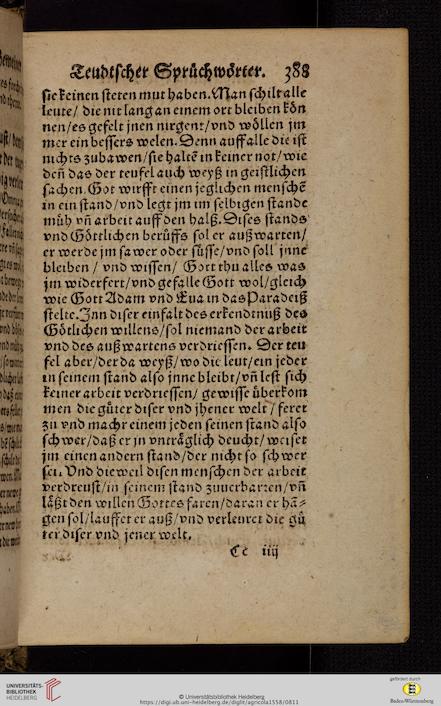 Teudtscher Sprüchwörter. 388
sie keinen steten mut haben. Man schilt alle
leute / die nit lang an einem ort bleiben kön
nen / es gefelt jnen nirgent / vnd wöllen jm
mer ein bessers welen. Denn auff alle die ist
nichts zubawen / sie haltē in keiner not / wie
deñ das der teufel auch weyß in geistlichen
sachen. Got wirfft einen jeglichen menschē
in ein stand / vnd legt jm im selbigen stande
müh vñ arbeit auff den halß. Dises stands
vnd Göttlichen berüffs sol er außwarten /
er werde jm sawer oder süsse / vnd soll jnne
bleiben / vnd wissen / Gott thu alles was
jm widerfert / vnd gefalle Gott wol / gleich
wie Gott Adam vnd Eua in das Paradeiß
stelte. Inn diser einfalt des erkendtnuß des
Götlichen willens / sol niemand der arbeit
vnd des außwartens verdriessen. Der teu
fel aber / der da weyß / wo die leut / ein jeder
in seinem stand also jnne bleibt / vñ lest sich
keiner arbeit verdriessen / gewisse überkom
men die güter diser vnd jhener welt / feret
zu vnd machr einem jeden seinen stand also
schwer / daß er jn vnträglich deucht / weiset
jm einen andern stand / der nicht so schwer
sei. Vnd dieweil disen menschen der arbeit
verdreust / in seinem stand zuuerharren / vñ
läßt den willen Gottes faren / daran er hā-
gen sol / lauffet er auß / vnd verleuret die gü
ter diser vnd jener welt.
Cc iiij
UNIVERSITÄTS-
BIBLIOTHEK
HEIDELBERG
© Universitätsbibliothek Heidelberg
https://digi.ub.uni-heidelberg.de/diglit/agricola1558/0811
gefördert durch
Baden-Württemberg